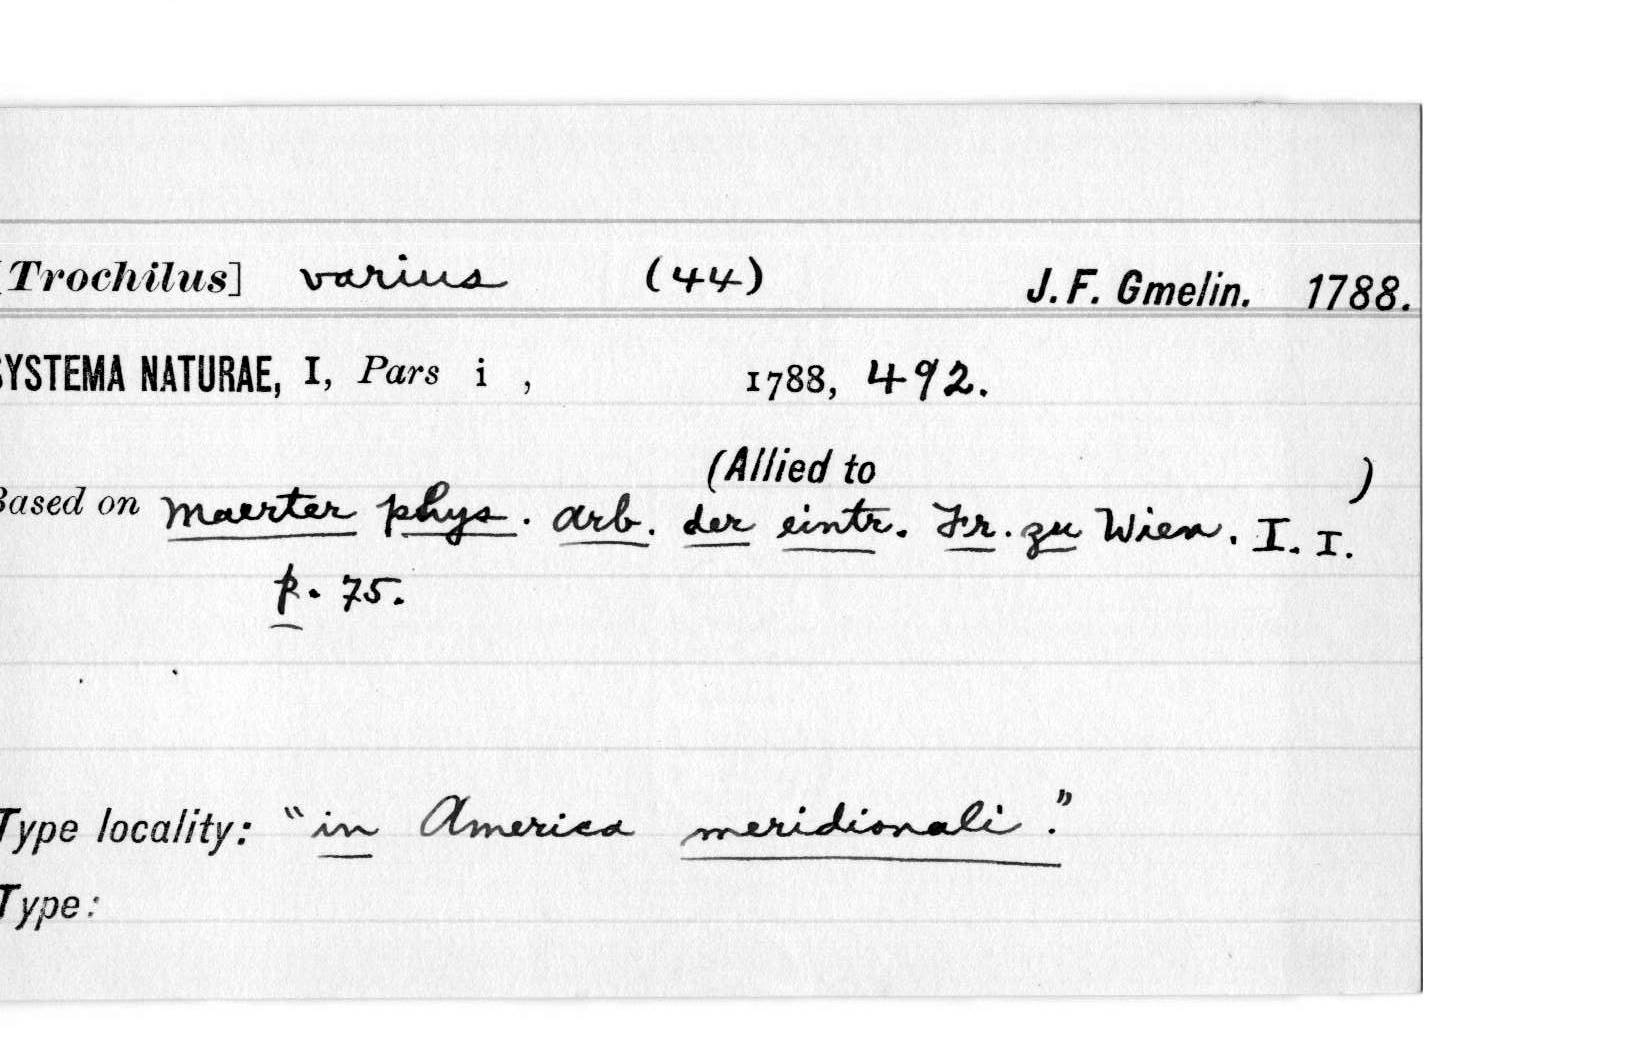 [Trochilus] varius (44) J. F. Gmelin. 1788.
SYSTEMA NATURAE, I, Pars i , 1788, 492.
(Allied to )
Based on Maerter phys. arb. der eintr. Fr. zu Wien. I. I.
p. 75.
Type locality: "in America meridionali."
Type: